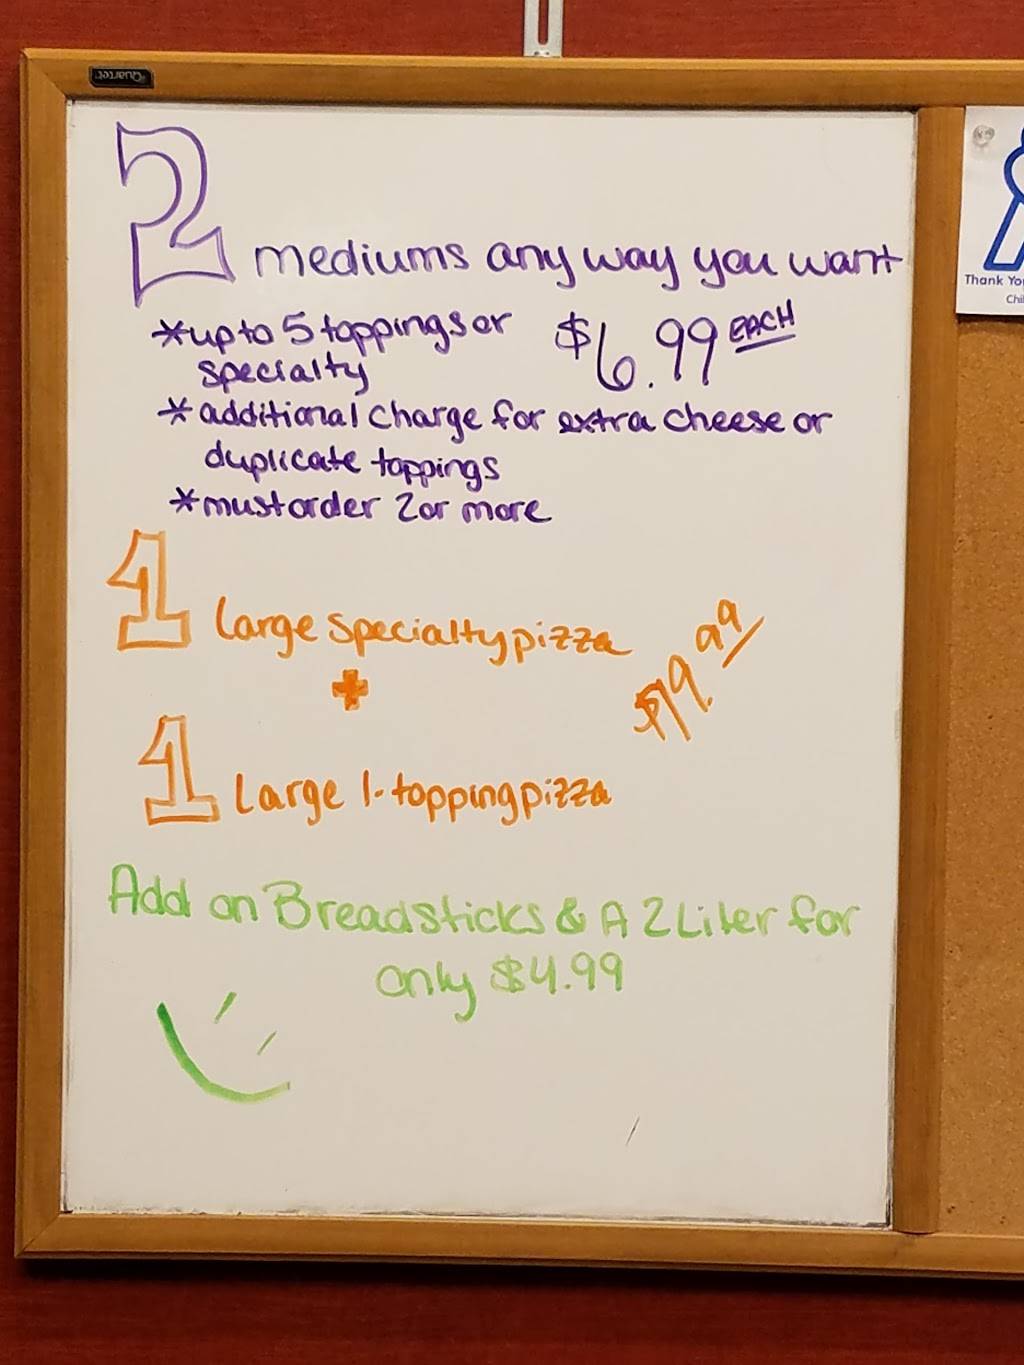 Quartet
2 mediums any way you want
*up to 5 toppings or
specialty
$6.99 EACH
*additional charge for extra cheese or
duplicate toppings
*must order 2 or more
1 Large specialty pizza
+
$19.99
1 Large 1-topping pizza
Add on Breadsticks & A 2 Liter for
only $4.99
Thank Yo
Chil